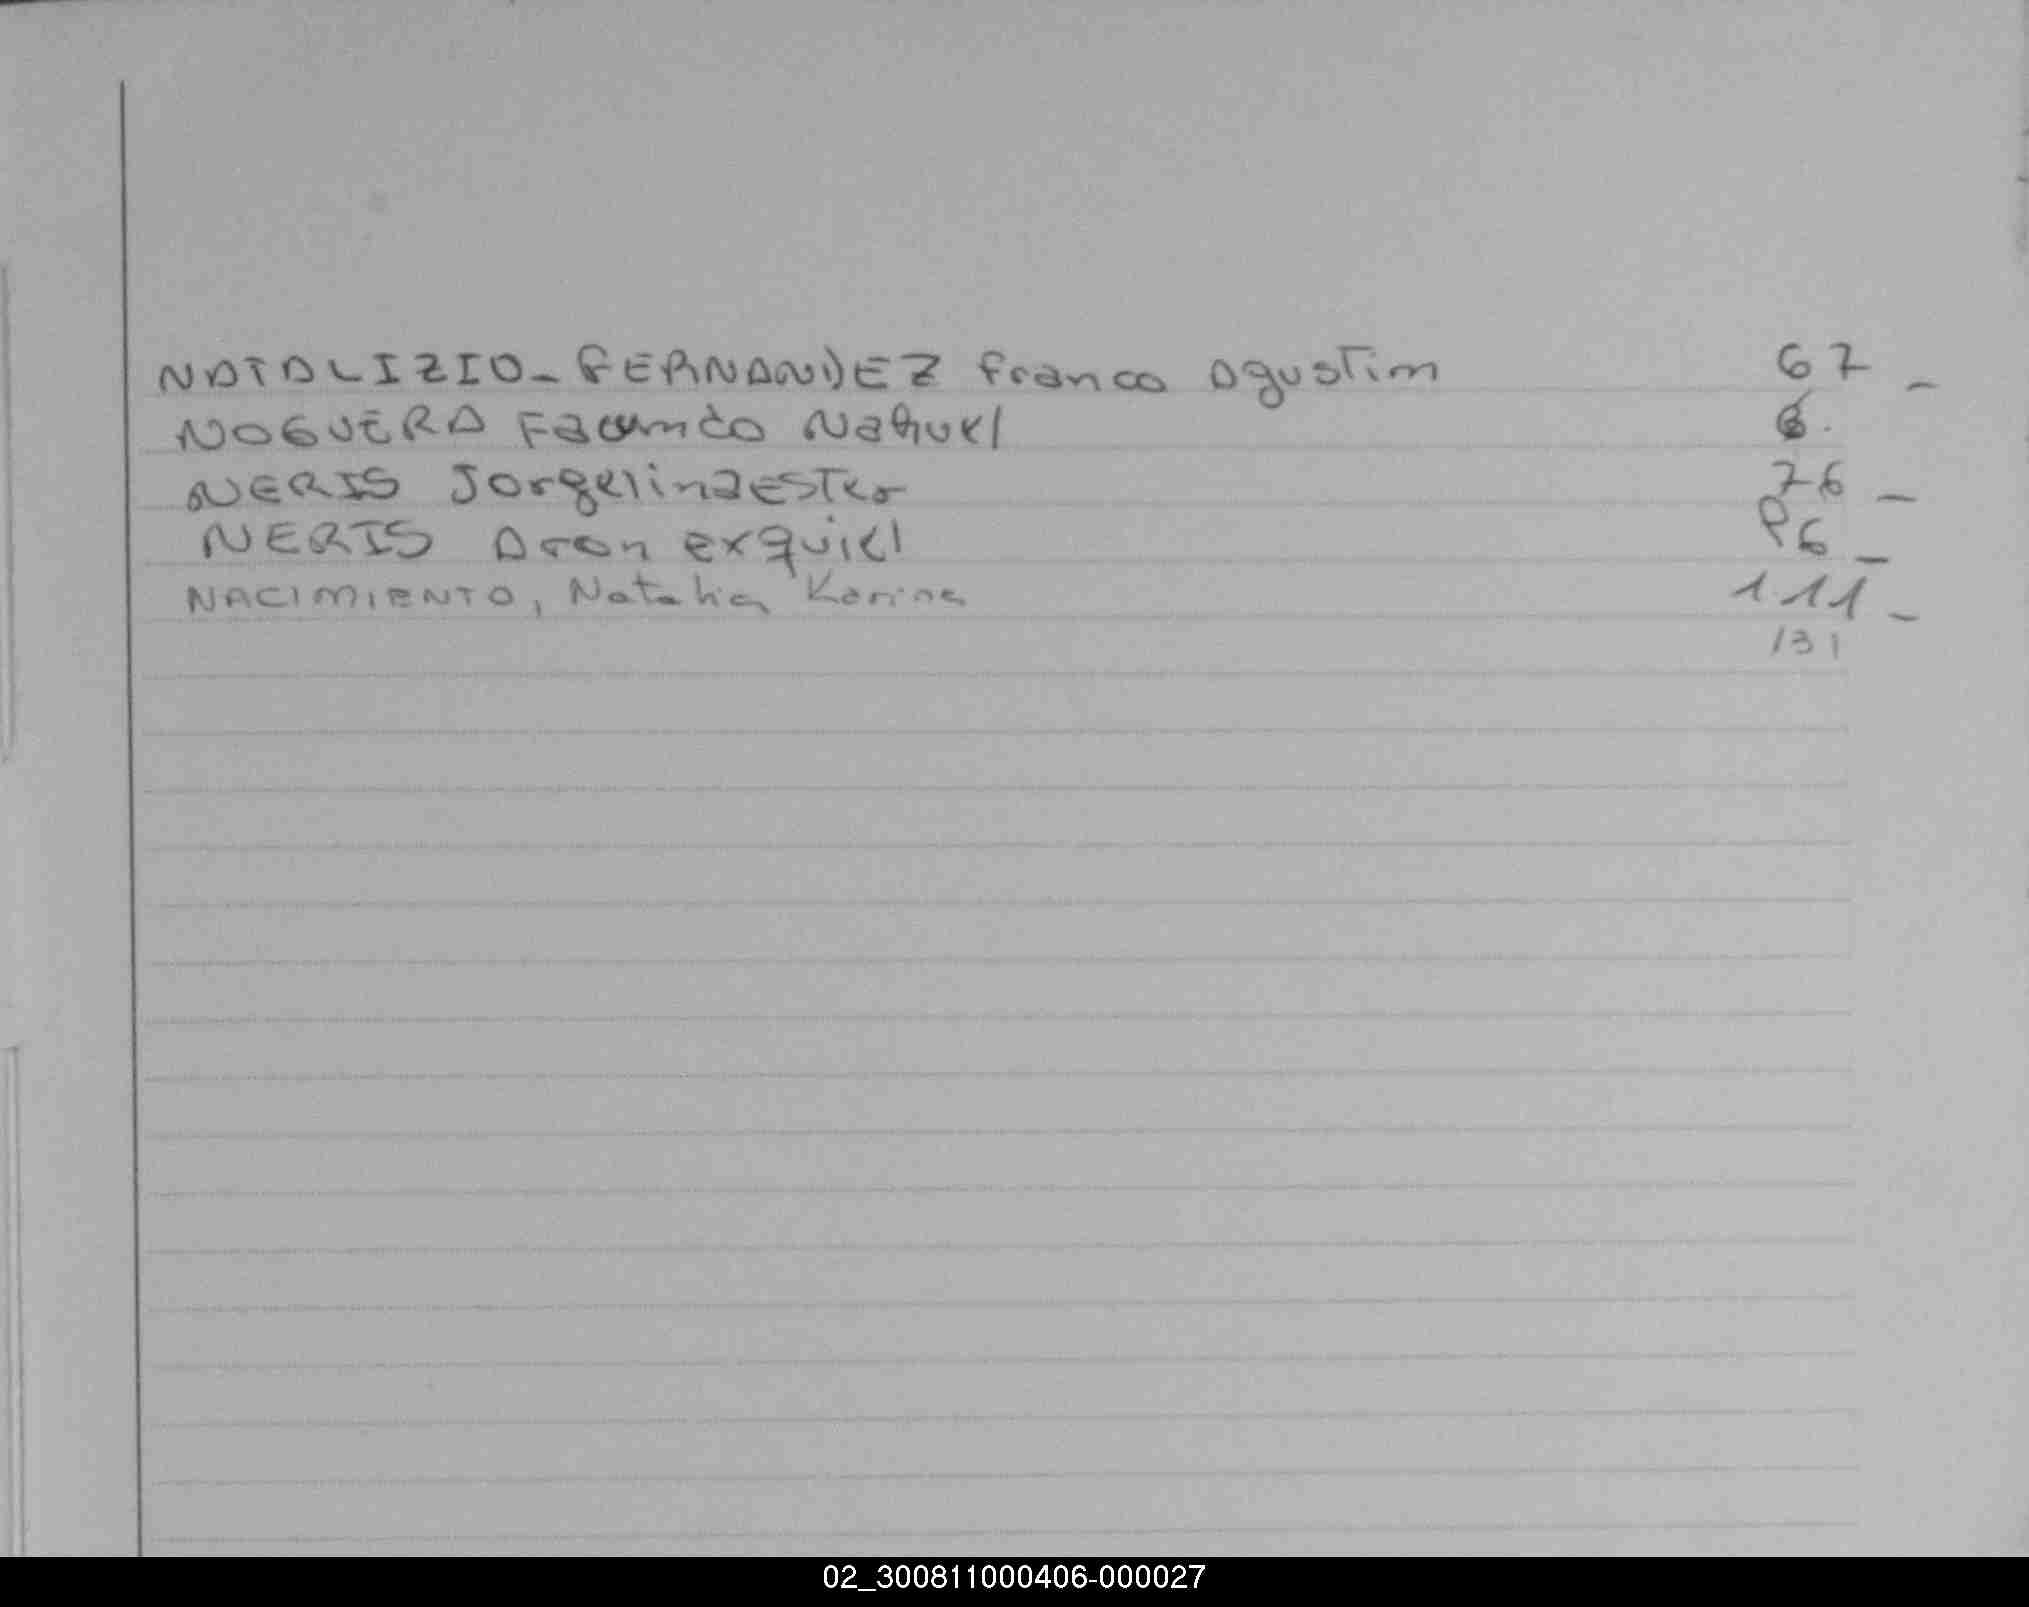 NATALIZIO - FERNANDEZ Franco Agustim 67 _
NOGUERA Facumdo Nahuel 6.
NERIS Jorgelina Ester 76 _
NERIS Aron exquiel 96 _
NACIMIENTO, Natalia Karina 111 _
131
02_300811000406-000027